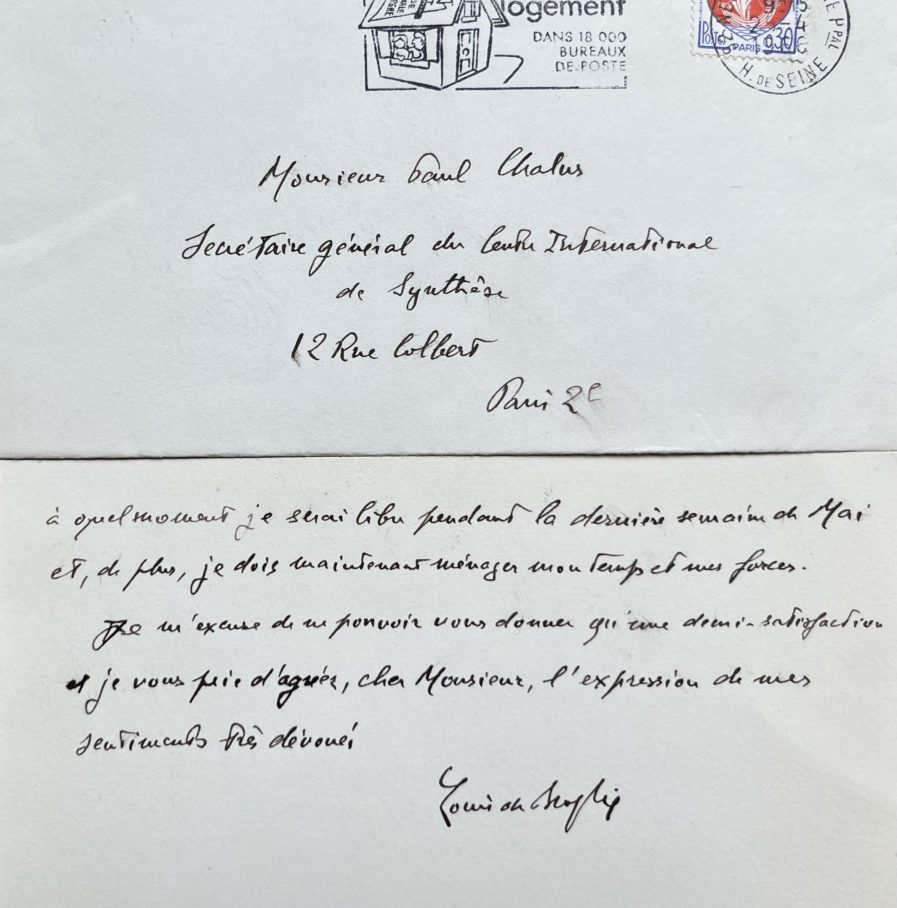 logement
DANS 18 000
BUREAUX
DE POSTE
POSTES
PARIS 0.30
H. DE SEINE
PPAL
Monsieur Paul Chalus
Secrétaire général du Centre International
de Synthèse
12 Rue Colbert
Paris 2e
à quel moment je serai libre pendant la dernière semaine de Mai
et, de plus, je dois maintenant ménager mon temps et mes forces.
Je m'excuse de ne pouvoir vous donner qu'une demi-satisfaction
et je vous prie d'agréer, cher Monsieur, l'expression de mes
sentiments très dévoués
Louis de Broglie